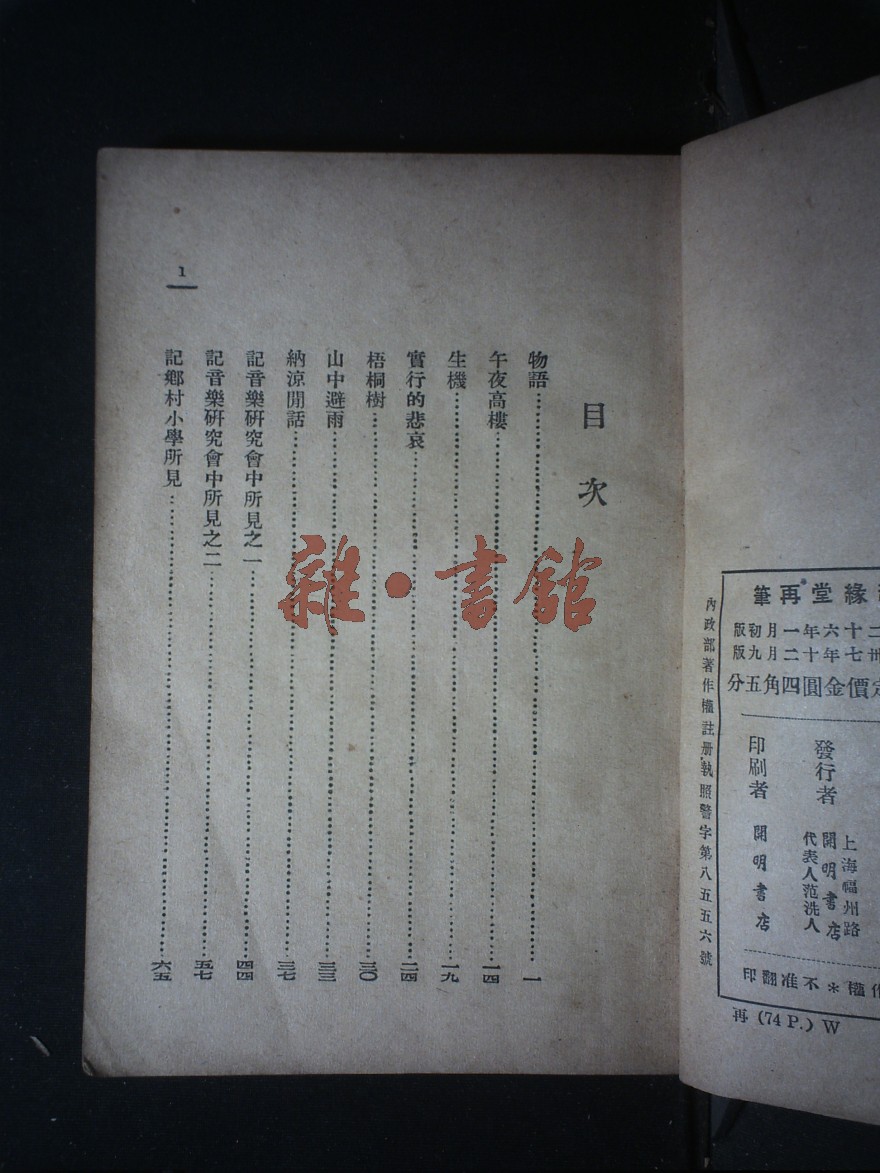 目次
物語……一
午夜高樓……一四
生機……一九
實行的悲哀……二四
梧桐樹……三〇
山中避雨……三三
納涼閒話……三七
記音樂研究會中所見之一……四四
記音樂研究會中所見之二……五七
記鄉村小學所見……六五
1
雜·書館
緣堂再筆
二十六年一月初版
卅七年十二月九版
定價金圓四角五分
發行者
上海福州路
開明書店
代表人范洗人
印刷者 開明書店
作權＊不准翻印
內政部著作權註册執照警字第八五五六號
再 (74 P.) W